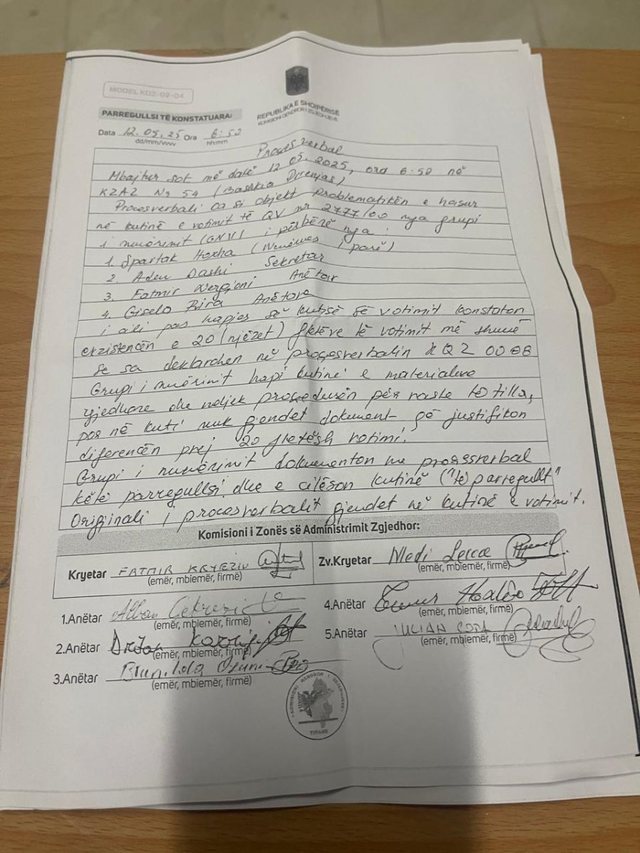 MODEL KQZ-09-04
REPUBLIKA E SHQIPËRISË
KOMISIONI QENDROR I ZGJEDHJEVE
PARREGULLSI TË KONSTATUARA:
Data 12.05.25 Ora 6:52
dd/mm/vvvv hh:mm
Procesverbal
Mbajtur sot më datë 12.05.2025, ora 6:52 në
KZAZ Nr 54 (Bashkia
Procesverbali ka si objekt problematikën e hasur
në kutinë e votimit të QV nr 2777/00 nga grupi
i numërimit (GNV) i përbërë nga:
1. Spartak Hoxha (Numërues parë)
2. Dashi Sekretar
3. Fatmir Anëtar
4. Gisela Anëtare
i cili pas hapjes së kutisë së votimit konstaton
ekzistencën e 20 (njëzet) fletëve të votimit më shumë
se sa deklarohen në procesverbalin KQZ
Grupi i numërimit hapi kutinë e materialeve
zgjedhore dhe ndjek procedurën për raste të tilla,
por në kuti nuk gjendet dokument që justifikon
diferencën prej 20 fletësh votimi.
Grupi i numërimit dokumenton me procesverbal
këtë parregullsi dhe e cilëson kutinë ("të parregullt"
Origjinali i procesverbalit gjendet në kutinë e votimit.
Komisioni i Zonës së Administrimit Zgjedhor:
Kryetar FATMIR KRYEZIU
(emër, mbiemër, firmë)
Zv.Kryetar
(emër, mbiemër, firmë)
1.Anëtar
(emër, mbiemër, firmë)
4.Anëtar
(emër, mbiemër, firmë)
2.Anëtar
(emër, mbiemër, firmë)
5.Anëtar JULIAN
(emër, mbiemër, firmë)
3.Anëtar
(emër, mbiemër, firmë)